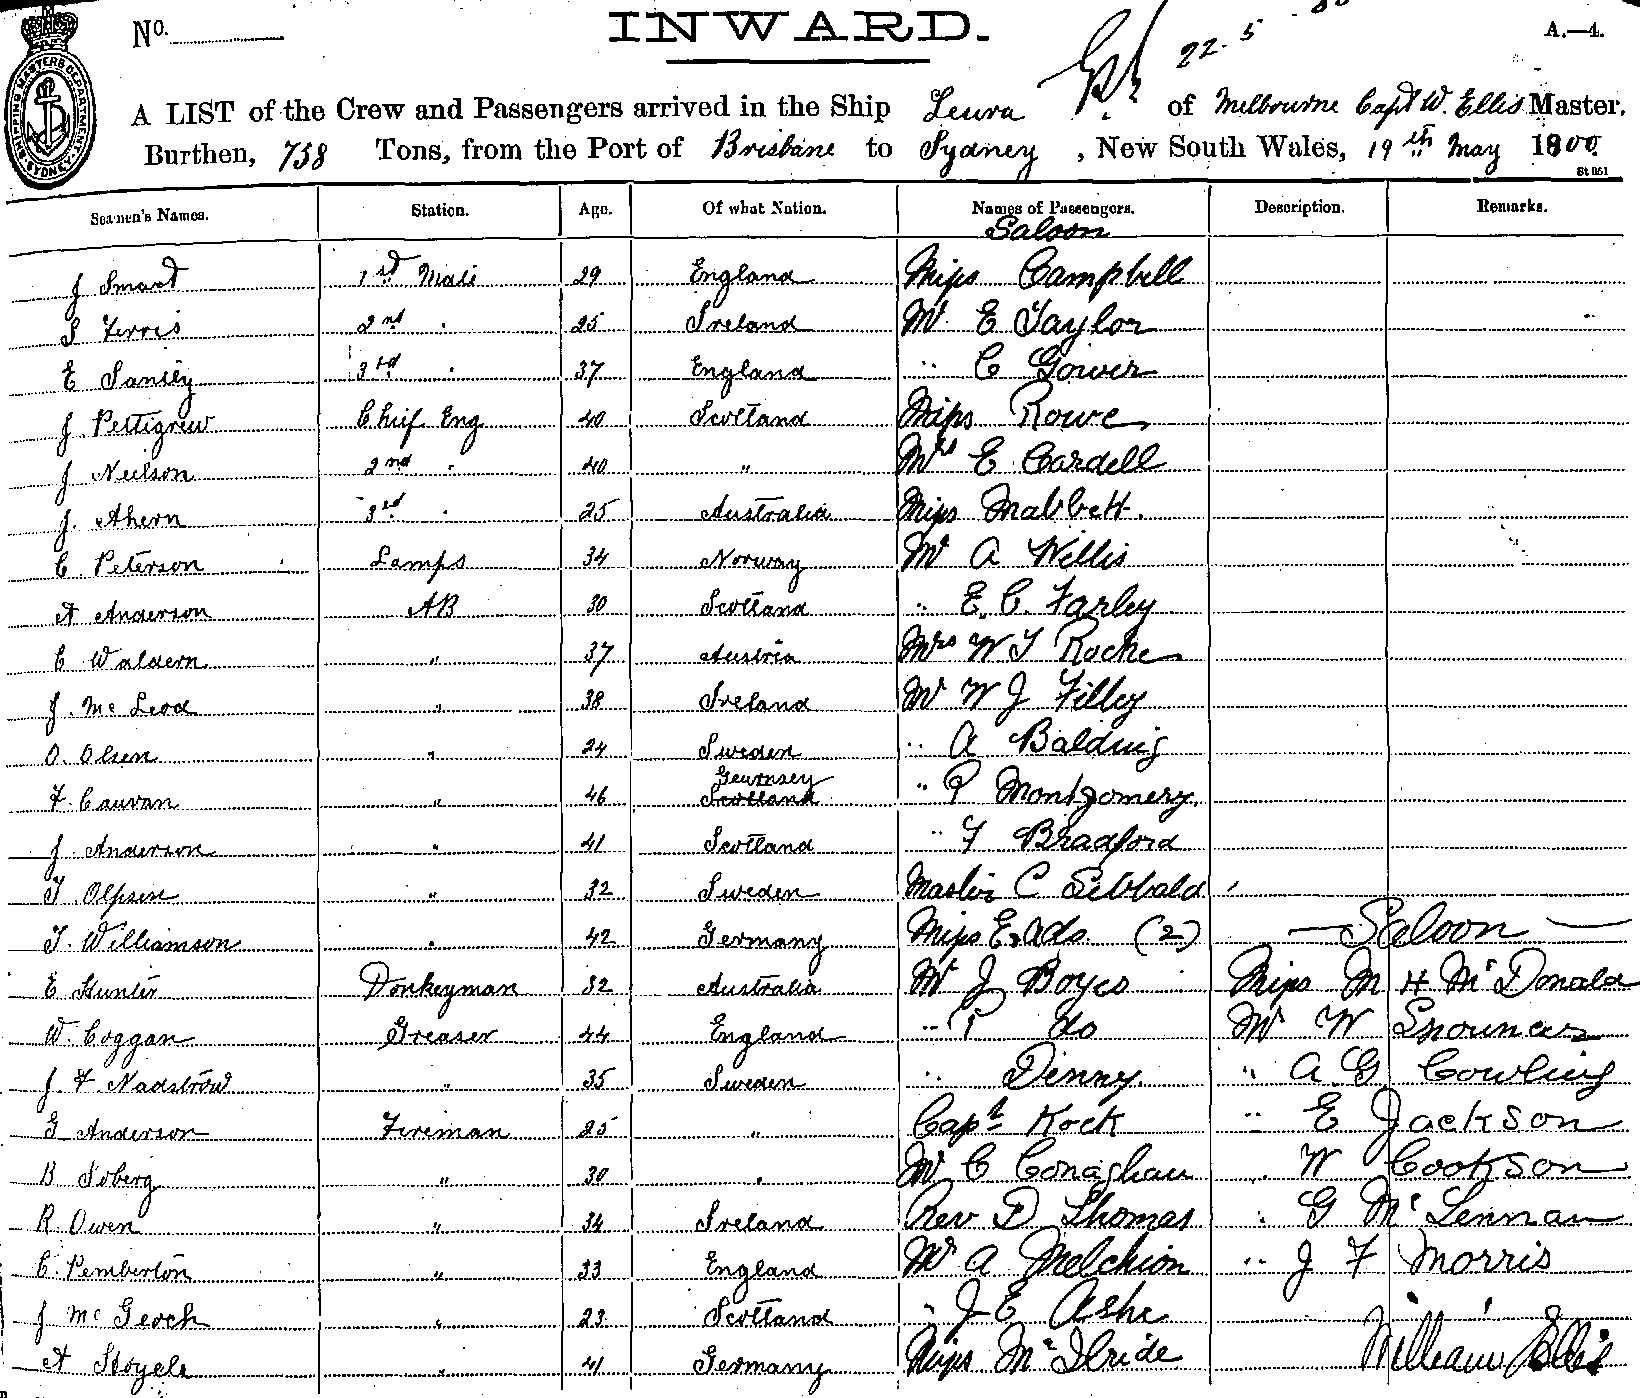 No.
INWARD.
22. 5
A.—4.
A LIST of the Crew and Passengers arrived in the Ship Leura of Melbourne Capt W. Ellis Master.
Burthen, 738 Tons, from the Port of Brisbane to Sydney, New South Wales, 19th May 1800
SHIPPING MASTERS DEPARTMENT SYDNEY
Seamen's Names. Station. Age. Of what Nation. Names of Passengers. Description. Remarks.
Saloon
J Smart 1st Mate 29 England Miss Campbell
S Ferris 2nd " 25 Ireland Mr E Taylor
E 3rd " 37 England " C Gower
J. Pettigrew Chief Eng 40 Scotland Miss Rowe
J Neilson 2nd " 40 " Mrs E Cardell
J. Ahern 3rd " 25 Australia Miss Mabbett.
C Peterson Lamps 34 Norway Mr A Willis
A Anderson AB 30 Scotland " E. C. Farley
C Waldern " 37 Austria Mrs W J Roche
J. McLeod " 38 Ireland Mr W J Filley
O. Olsen " 24 Sweden " A Balding
F Cauvan " 46 Guernsey Scotland " P Montgomery.
J. Anderson " 41 Scotland " F Bradford
T Olssen " 32 Sweden Master C Sibbald
T. Williamson " 42 Germany Miss E. do (2) — Saloon —
E Hunter Donkeyman 32 Australia Mr J Boyes Miss M H McDonald
W. Coggan Greaser 44 England " P do Mr W
J. F. Nadström " 35 Sweden " Denny. " A G Cowling
G Anderson Fireman 25 " Capt Kock " E Jackson
B Soberg " 30 " Mr C Conaghan " W Cookson
R. Owen " 34 Ireland Rev D Thomas " G McLennan
C. Pemberton " 33 England Mr A Melchior " J F Morris
J McGeoch " 23 Scotland " J E Ashe
A Stoyele " 41 Germany Miss McIlride William Ellis